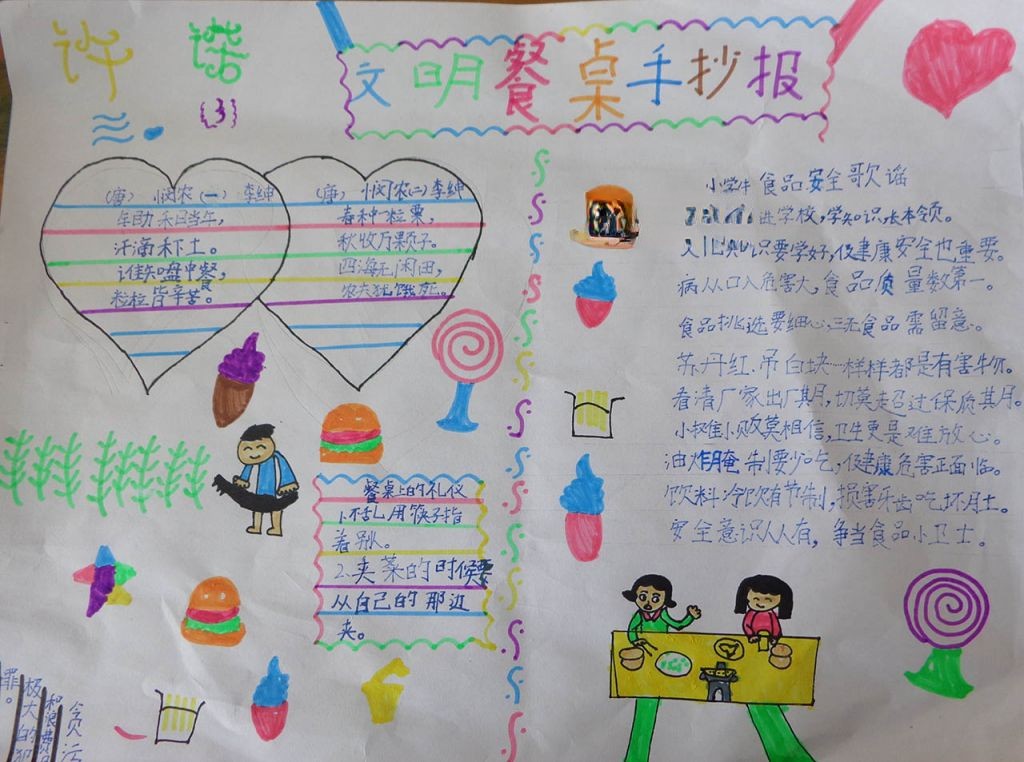 许诺
(3)
文明餐桌手抄报
(唐) 悯农(一) 李绅
汗滴禾下土。
谁知盘中餐,
粒粒皆辛苦。
(唐) 悯农(二) 李绅
春种一粒粟,
秋收万颗子。
四海无闲田,
农夫犹饿死。
餐桌上的礼仪
1.不乱用筷子指
着别人。
2.夹菜的时候要
从自己的那边
夹。
贪污
和浪费
极大的犯
罪。
小学生食品安全歌谣
进学校,学知识长本领。
知识要学好,健康安全也重要。
病从口入危害大,食品质量数第一。
食品挑选要细心,三无食品需留意。
苏丹红、吊白块一样样都是有害物。
看清厂家出厂期月,切莫超过保质其月。
小摊小贩莫相信,卫生更是难放心。
油炸腌制要少吃,健康危害正面临。
饮料冷饮有节制,损害牙齿吃坏月土。
安全意识人人有,争当食品小卫士。